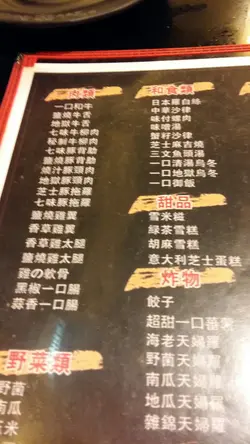 肉類
一口和牛
鹽燒牛舌
地獄牛舌
七味牛柳肉
秘制牛柳肉
七味豚背肋
鹽燒豚背肋
燒汁豚頭肉
地獄豚頭肉
芝士豚拖羅
七味豚拖羅
鹽燒雞翼
香草雞翼
香草雞太腿
鹽燒雞太腿
雞の軟骨
黑椒一口腸
蒜香一口腸
野菜類
野菌
南瓜
玉米
和食類
日本羅白絲
中華沙律
味付螺肉
味噌湯
蟹籽沙律
芝士麻吉燒
三文魚頭湯
一口清湯烏冬
一口地獄烏冬
一口御飯
甜品
雪米糍
綠茶雪糕
胡麻雪糕
意大利芝士蛋糕
炸物
餃子
超甜一口蕃薯
海老天婦羅
野菌天婦羅
南瓜天婦羅
地瓜天婦羅
雜錦天婦羅